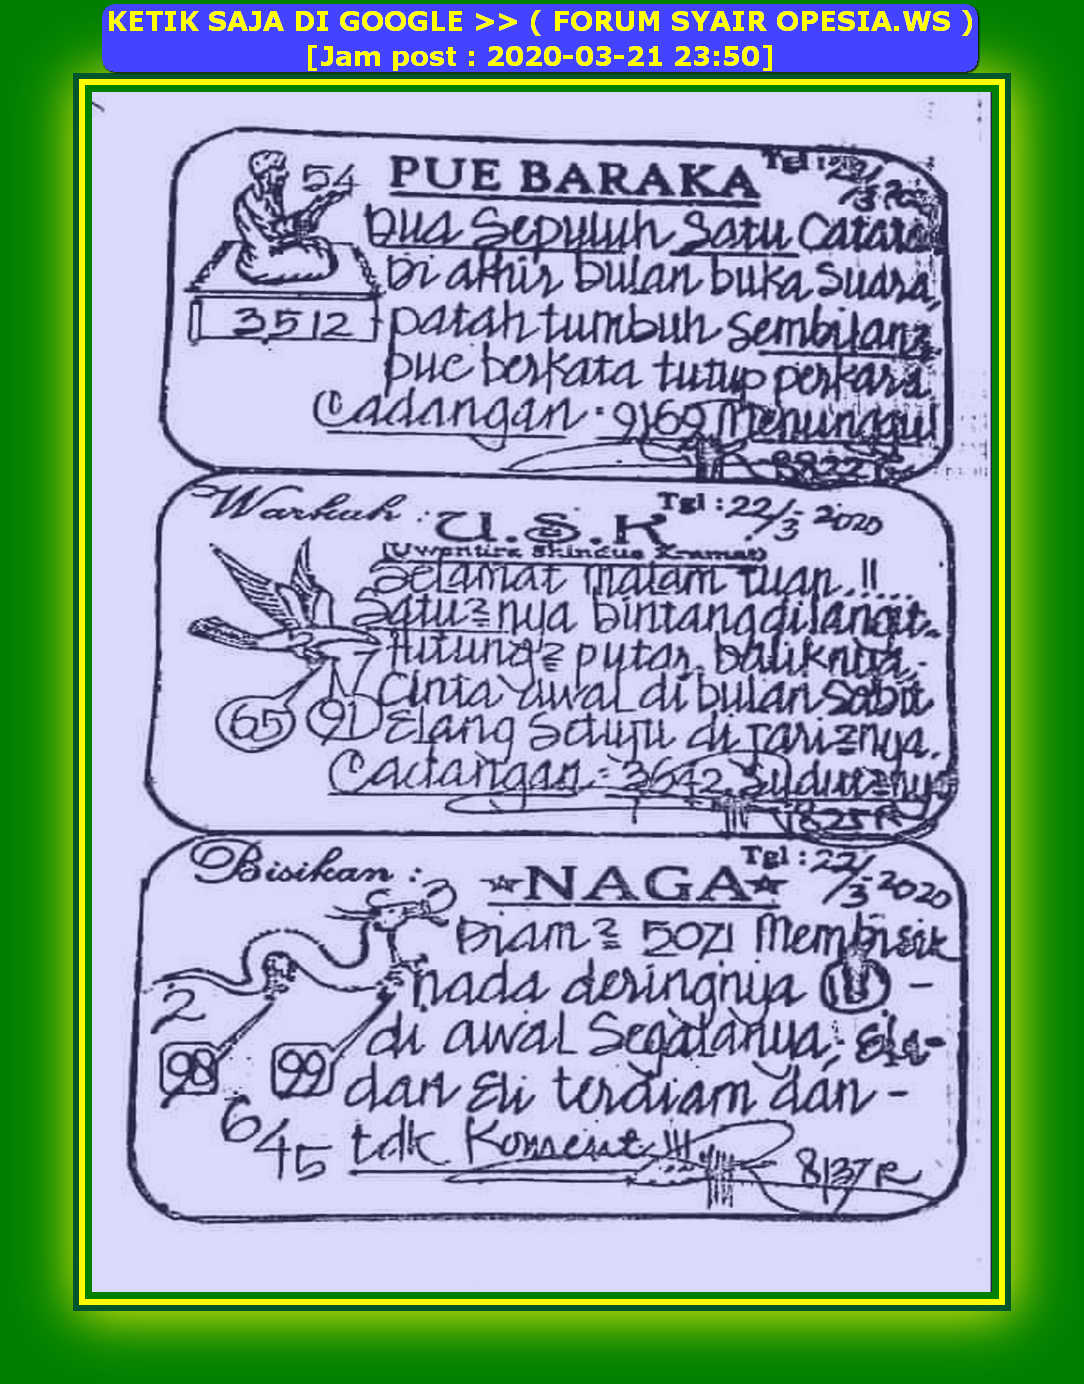 KETIK SAJA DI GOOGLE >> ( FORUM SYAIR OPESIA.WS )
[Jam post : 2020-03-21 23:50]
54 PUE BARAKA Tgl : 22/3 2020
Dua Sepuluh Satu Catatan
Di akhir bulan buka Suara,
3512 patah tumbuh Sembilan2
pue berkata tutup perkara
Cadangan : 9169 Menunggu!
8822 R
Warkuh : U.S.K Tgl : 22/3 2020
(Uwentira Shindue Kramat)
Selamat malam tuan.!!...
Satu2nya bintang dilangit.
Hitung2 putar baliknya.
7 Cinta awal di bulan Sabit
65 91 Elang Setuju di jari2nya.
Cadangan : 3642. Sudut2nya
1825 R
Bisikan : ☆NAGA☆ Tgl : 22/3 2020
3
Diam2 5071 Membisik
nada deringnya –
2
di awal Segalanya,
98 99 dan Eli terdiam dan –
645 tdk Koment !!!
8137 R